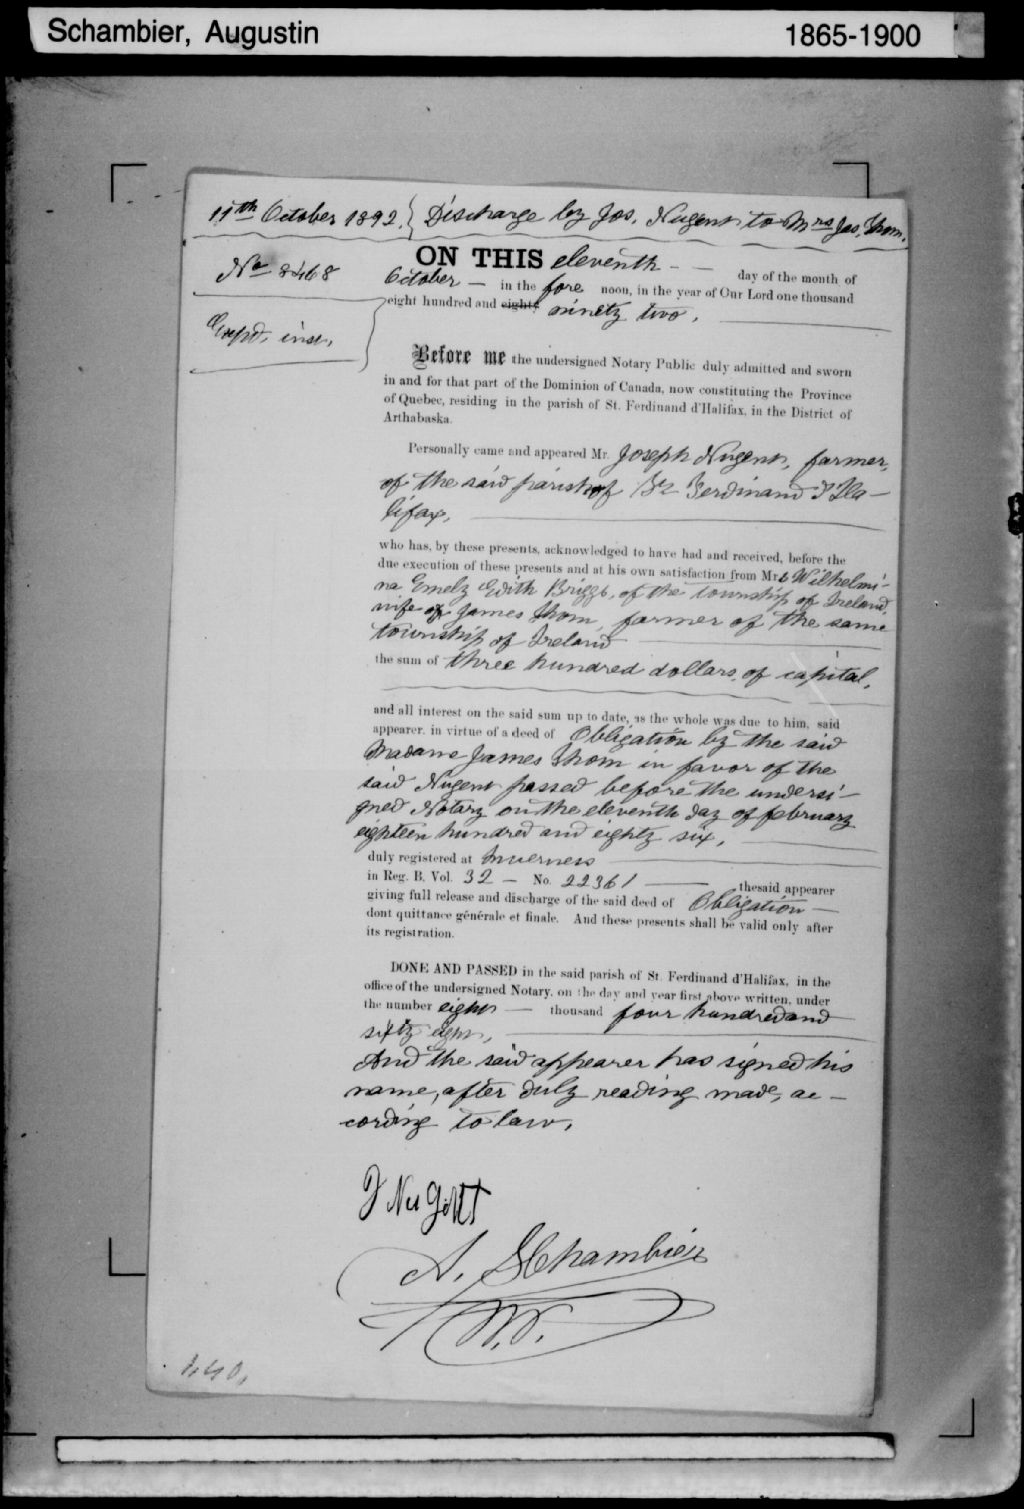 Schambier, Augustin 1865-1900
11th October 1892. } Discharge by Jos. Nugent to Mrs Jas. Thom.
No 8468
Exepd. insc.
ON THIS eleventh - - day of the month of
October - in the fore noon, in the year of Our Lord one thousand
eight hundred and eighty ninety two.
Before me the undersigned Notary Public duly admitted and sworn
in and for that part of the Dominion of Canada, now constituting the Province
of Quebec, residing in the parish of St. Ferdinand d'Halifax, in the District of
Arthabaska.
Personally came and appeared Mr. Joseph Nugent, farmer,
of the said parish of St Ferdinand d'Ha-
lifax,
who has, by these presents, acknowledged to have had and received, before the
due execution of these presents and at his own satisfaction from Mrs Wilhelmi-
na Emely Edith Briggs, of the township of Ireland,
wife of James Thom, farmer of the same
township of Ireland
the sum of three hundred dollars, of capital,
and all interest on the said sum up to date, as the whole was due to him, said
appearer, in virtue of a deed of Obligation by the said
Madame James Thom in favor of the
said Nugent passed before the undersi-
gned Notary on the eleventh day of february
eighteen hundred and eighty six,
duly registered at Inverness
in Reg. B. Vol. 32 - No. 22361 - thesaid appearer
giving full release and discharge of the said deed of Obligation -
dont quittance générale et finale. And these presents shall be valid only after
its registration.
DONE AND PASSED in the said parish of St. Ferdinand d'Halifax, in the
office of the undersigned Notary, on the day and year first above written, under
the number eight - thousand four hundred and
sixty eight,
And the said appearer has signed his
name, after duly reading made, ac-
cording to law.
J Nugent
A. SChambier
N.P.
1,40,